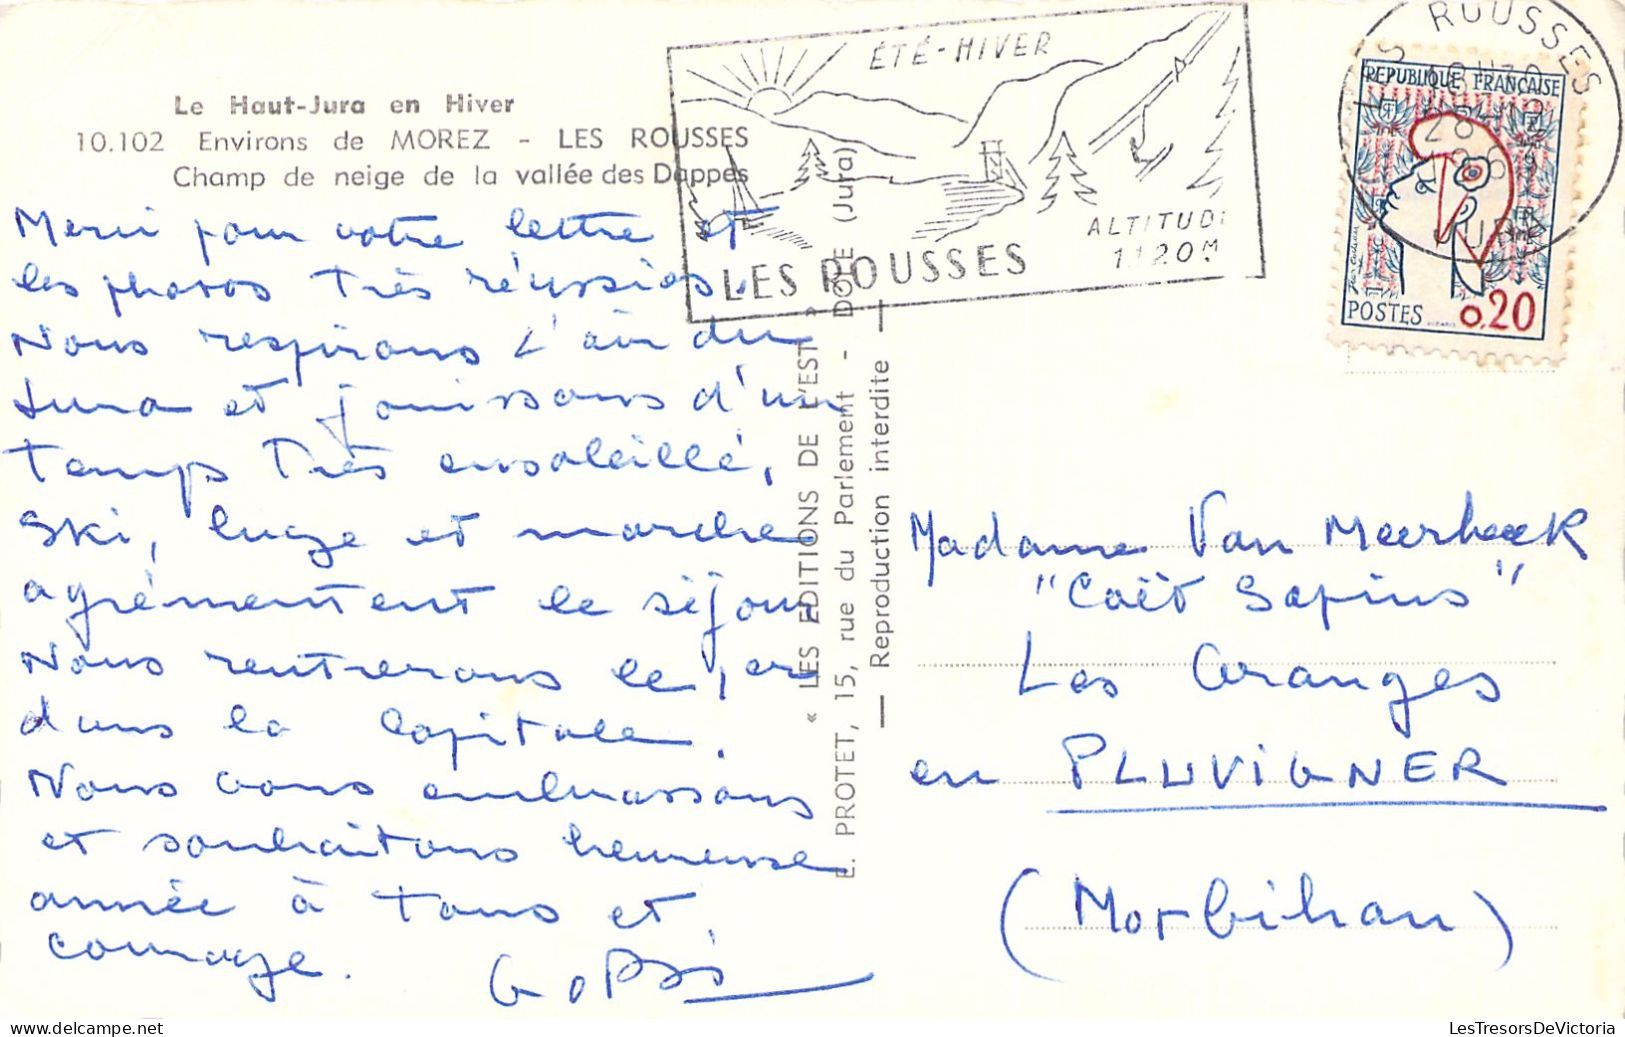 Le Haut-Jura en Hiver
10.102 Environs de MOREZ - LES ROUSSES
Champ de neige de la vallée des Dappes
Merci pour votre lettre et
les photos très réussies.
Nous respirons l'air du
Jura et jouissons d'un
temps très ensoleillé,
Ski, luge et marche
agrémentent le séjour
Nous rentrerons le 1er
dans la capitale.
Nous vous embrassons
et souhaitons heureuse
année à tous et
courage.
« LES EDITIONS DE L'EST »
E. PROTET, 15, rue du Parlement - DOLE (Jura)
— Reproduction interdite —
ÉTÉ-HIVER
ALTITUDE
1120M
LES ROUSSES
ROUSSES
JURA
REPUBLIQUE FRANÇAISE
POSTES 0,20
Madame Van Meerbeeck
"Coët Sapins"
Les Granges
en PLUVIGNER
(Morbihan)
LesTresorsDeVictoria.com
LesTresorsDeVictoria